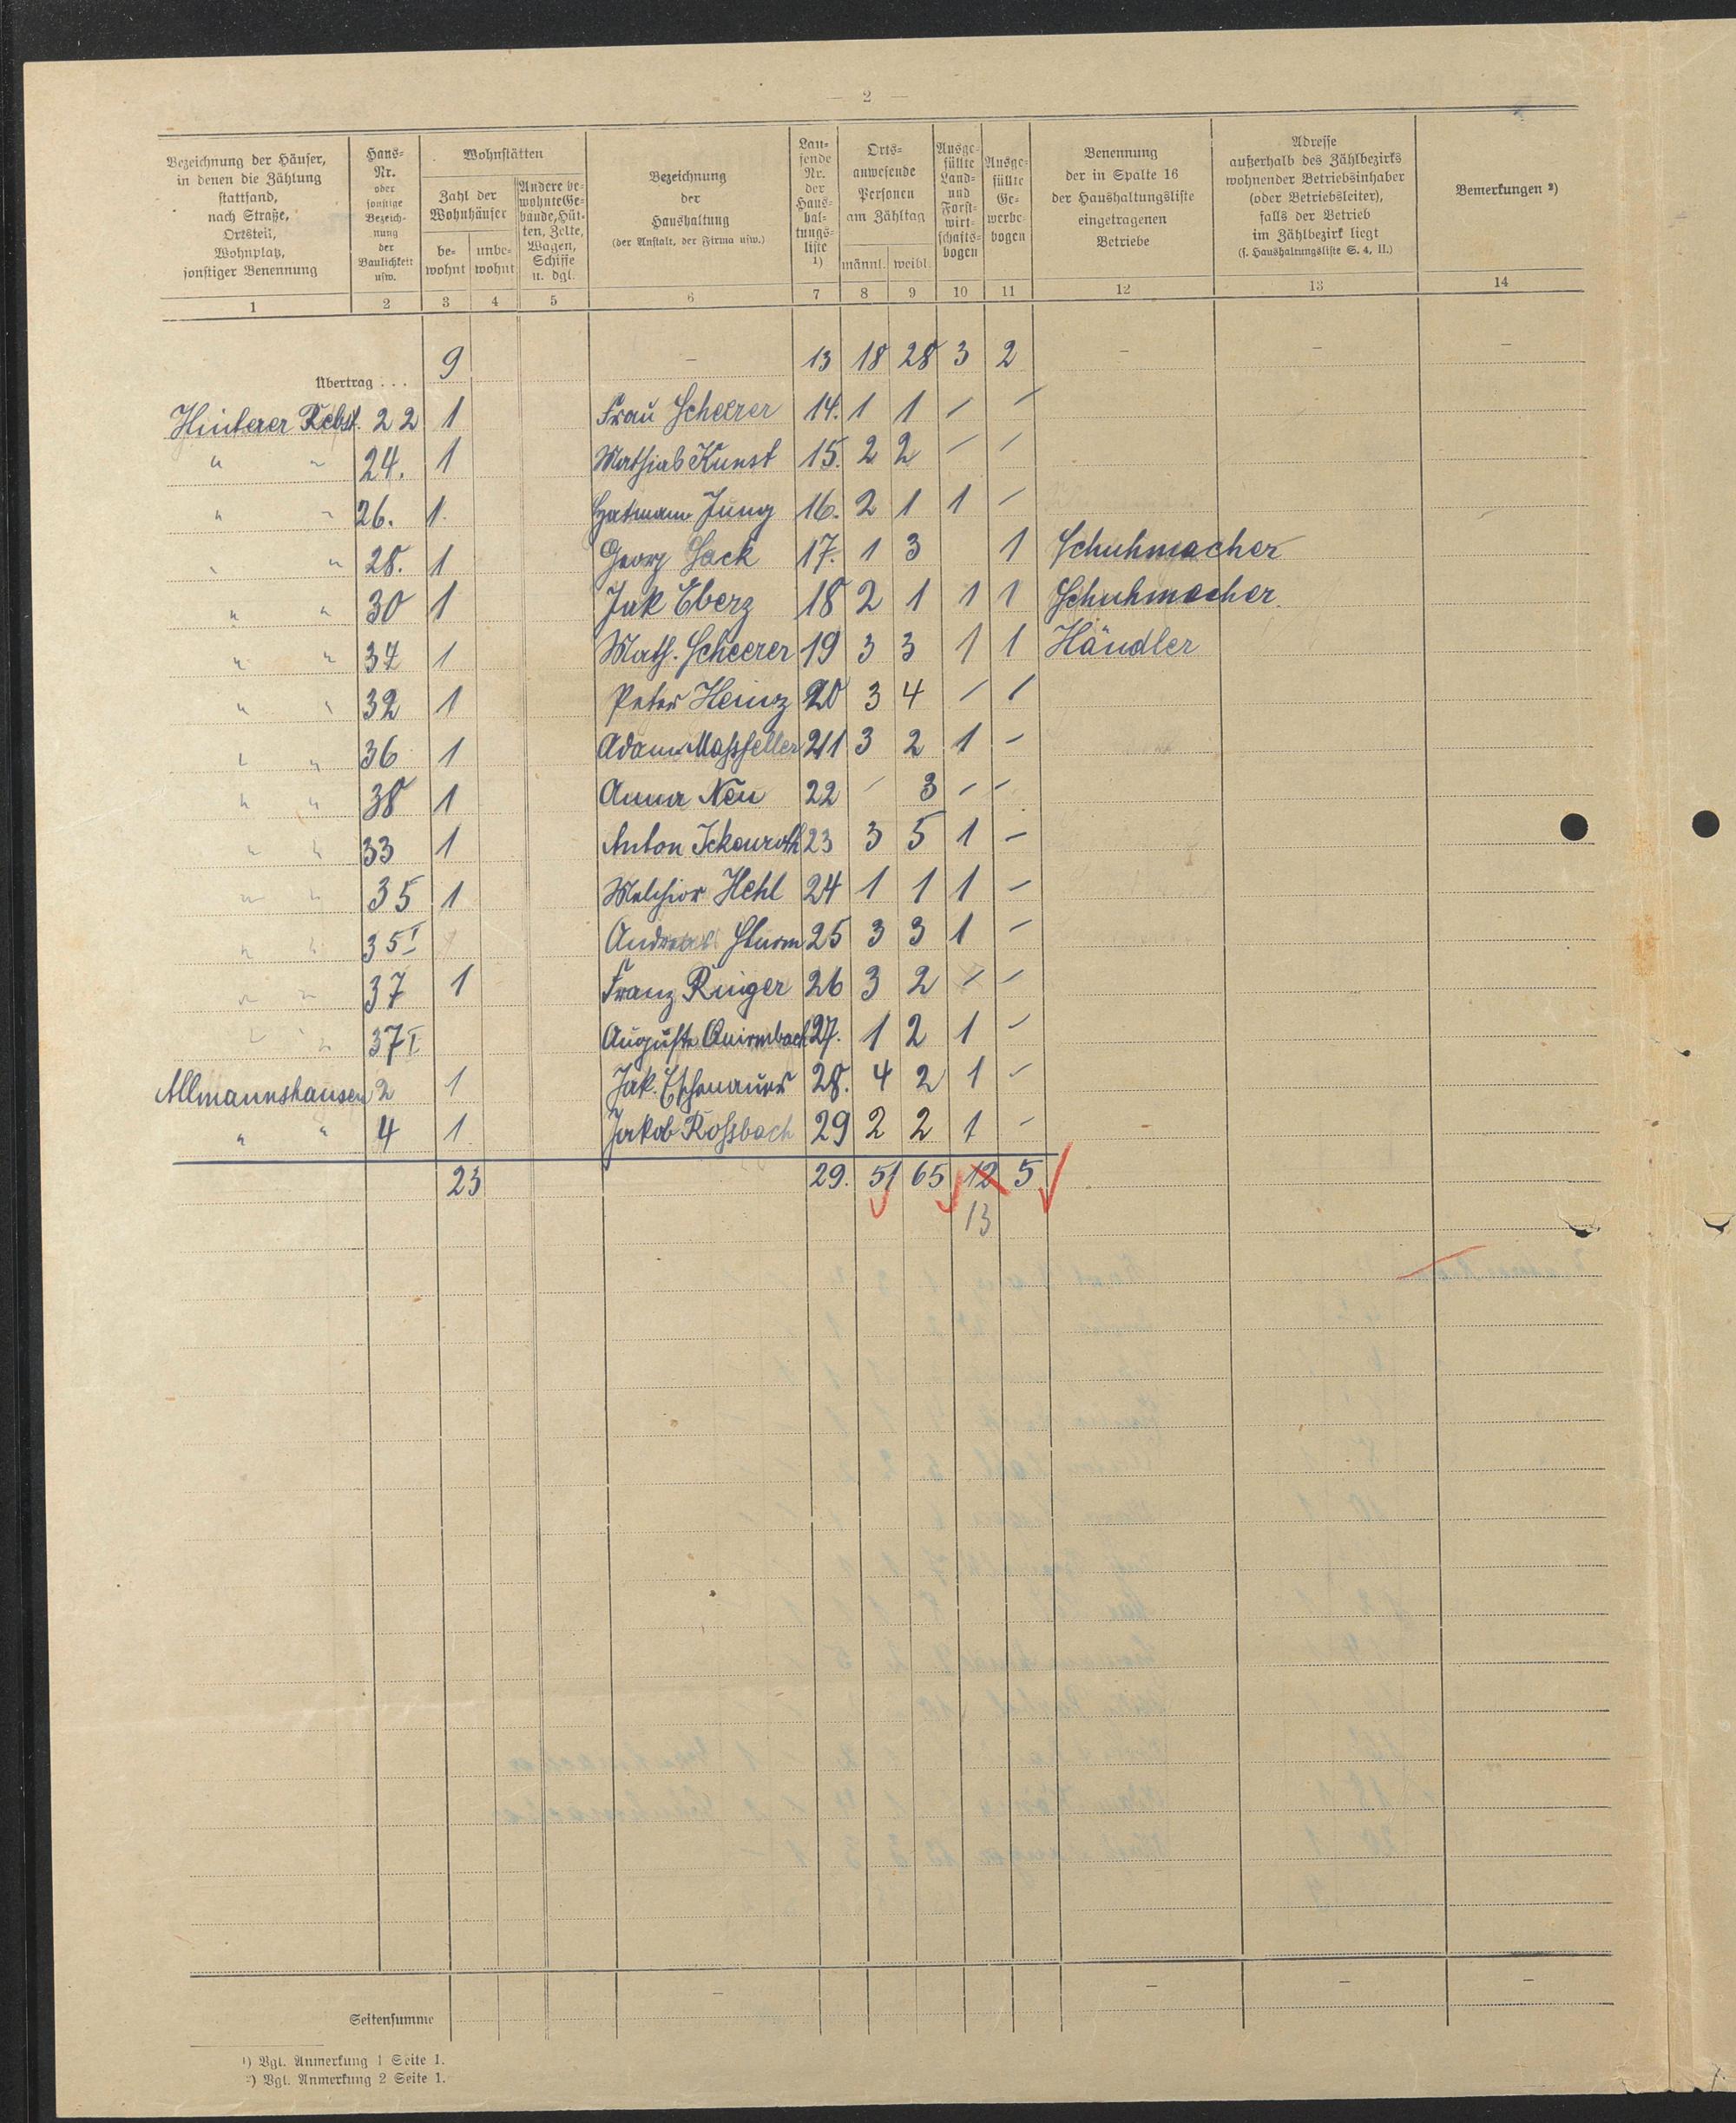 — 2 —
Bezeichnung der Häuser, in denen die Zählung stattfand, nach Straße, Ortsteil, Wohnplatz, sonstiger Benennung
Haus-Nr. oder sonstige Bezeich-nung der Baulichkeit usw.
Wohnstätten
Zahl der Wohnhäuser
be-wohnt
unbe-wohnt
Andere be-wohnte Ge-bäude, Hüt-ten, Zelte, Wagen, Schiffe u. dgl.
Bezeichnung der Haushaltung (der Anstalt, der Firma usw.)
Lau-fende Nr. der Haus-hal-tungs-liste 1)
Orts-anwesende Personen am Zähltag
männl.
weibl.
Ausge-füllte Land- und Forst-wirt-schafts-bogen
Ausge-füllte Ge-werbe-bogen
Benennung der in Spalte 16 der Haushaltungsliste eingetragenen Betriebe
Adresse außerhalb des Zählbezirks wohnender Betriebsinhaber (oder Betriebsleiter), falls der Betrieb im Zählbezirk liegt (s. Haushaltungsliste S. 4, II.)
Bemerkungen 2)
1 2 3 4 5 6 7 8 9 10 11 12 13 14
Übertrag . . . 9 — 13 18 28 3 2 — — —
Hinterer Rebst. 22 1 Frau Scheerer 14. 1 1 / /
" " 24. 1 Mathias Kunst 15. 2 2 – /
" " 26. 1. Jung 16. 2 1 1 /
" " 28. 1 Georg Sack 17. 1 3 1 Schuhmacher
" " 30 1 Jak Eberz 18 2 1 1 1 Schuhmacher.
" " 34 1 Math. Scheerer 19 3 3 1 1 Händler
" " 32 1 Peter Heinz 20 3 4 / /
" " 36 1 Adam Massfeller 21 3 2 1 –
" " 38 1 Anna Neu 22 – 3 – –
" " 33 1 Anton Ickenroth 23 3 5 1 –
" " 35 1 Melchior Hehl 24 1 1 1 –
" " 35I Andreas Sturm 25 3 3 1 –
" " 37 1 Franz Ringer 26 3 2 – –
" " 37I Auguste Quirmbach 27. 1 2 1 –
Allmannshausen 2 1 Jak. Eschenauer 28. 4 2 1 –
" " 4 1. Jakob Rossbach 29 2 2 1 –
23 29. 51 65 12 5
13
— — — —
Seitensumme
1) Vgl. Anmerkung 1 Seite 1.
2) Vgl. Anmerkung 2 Seite 1.